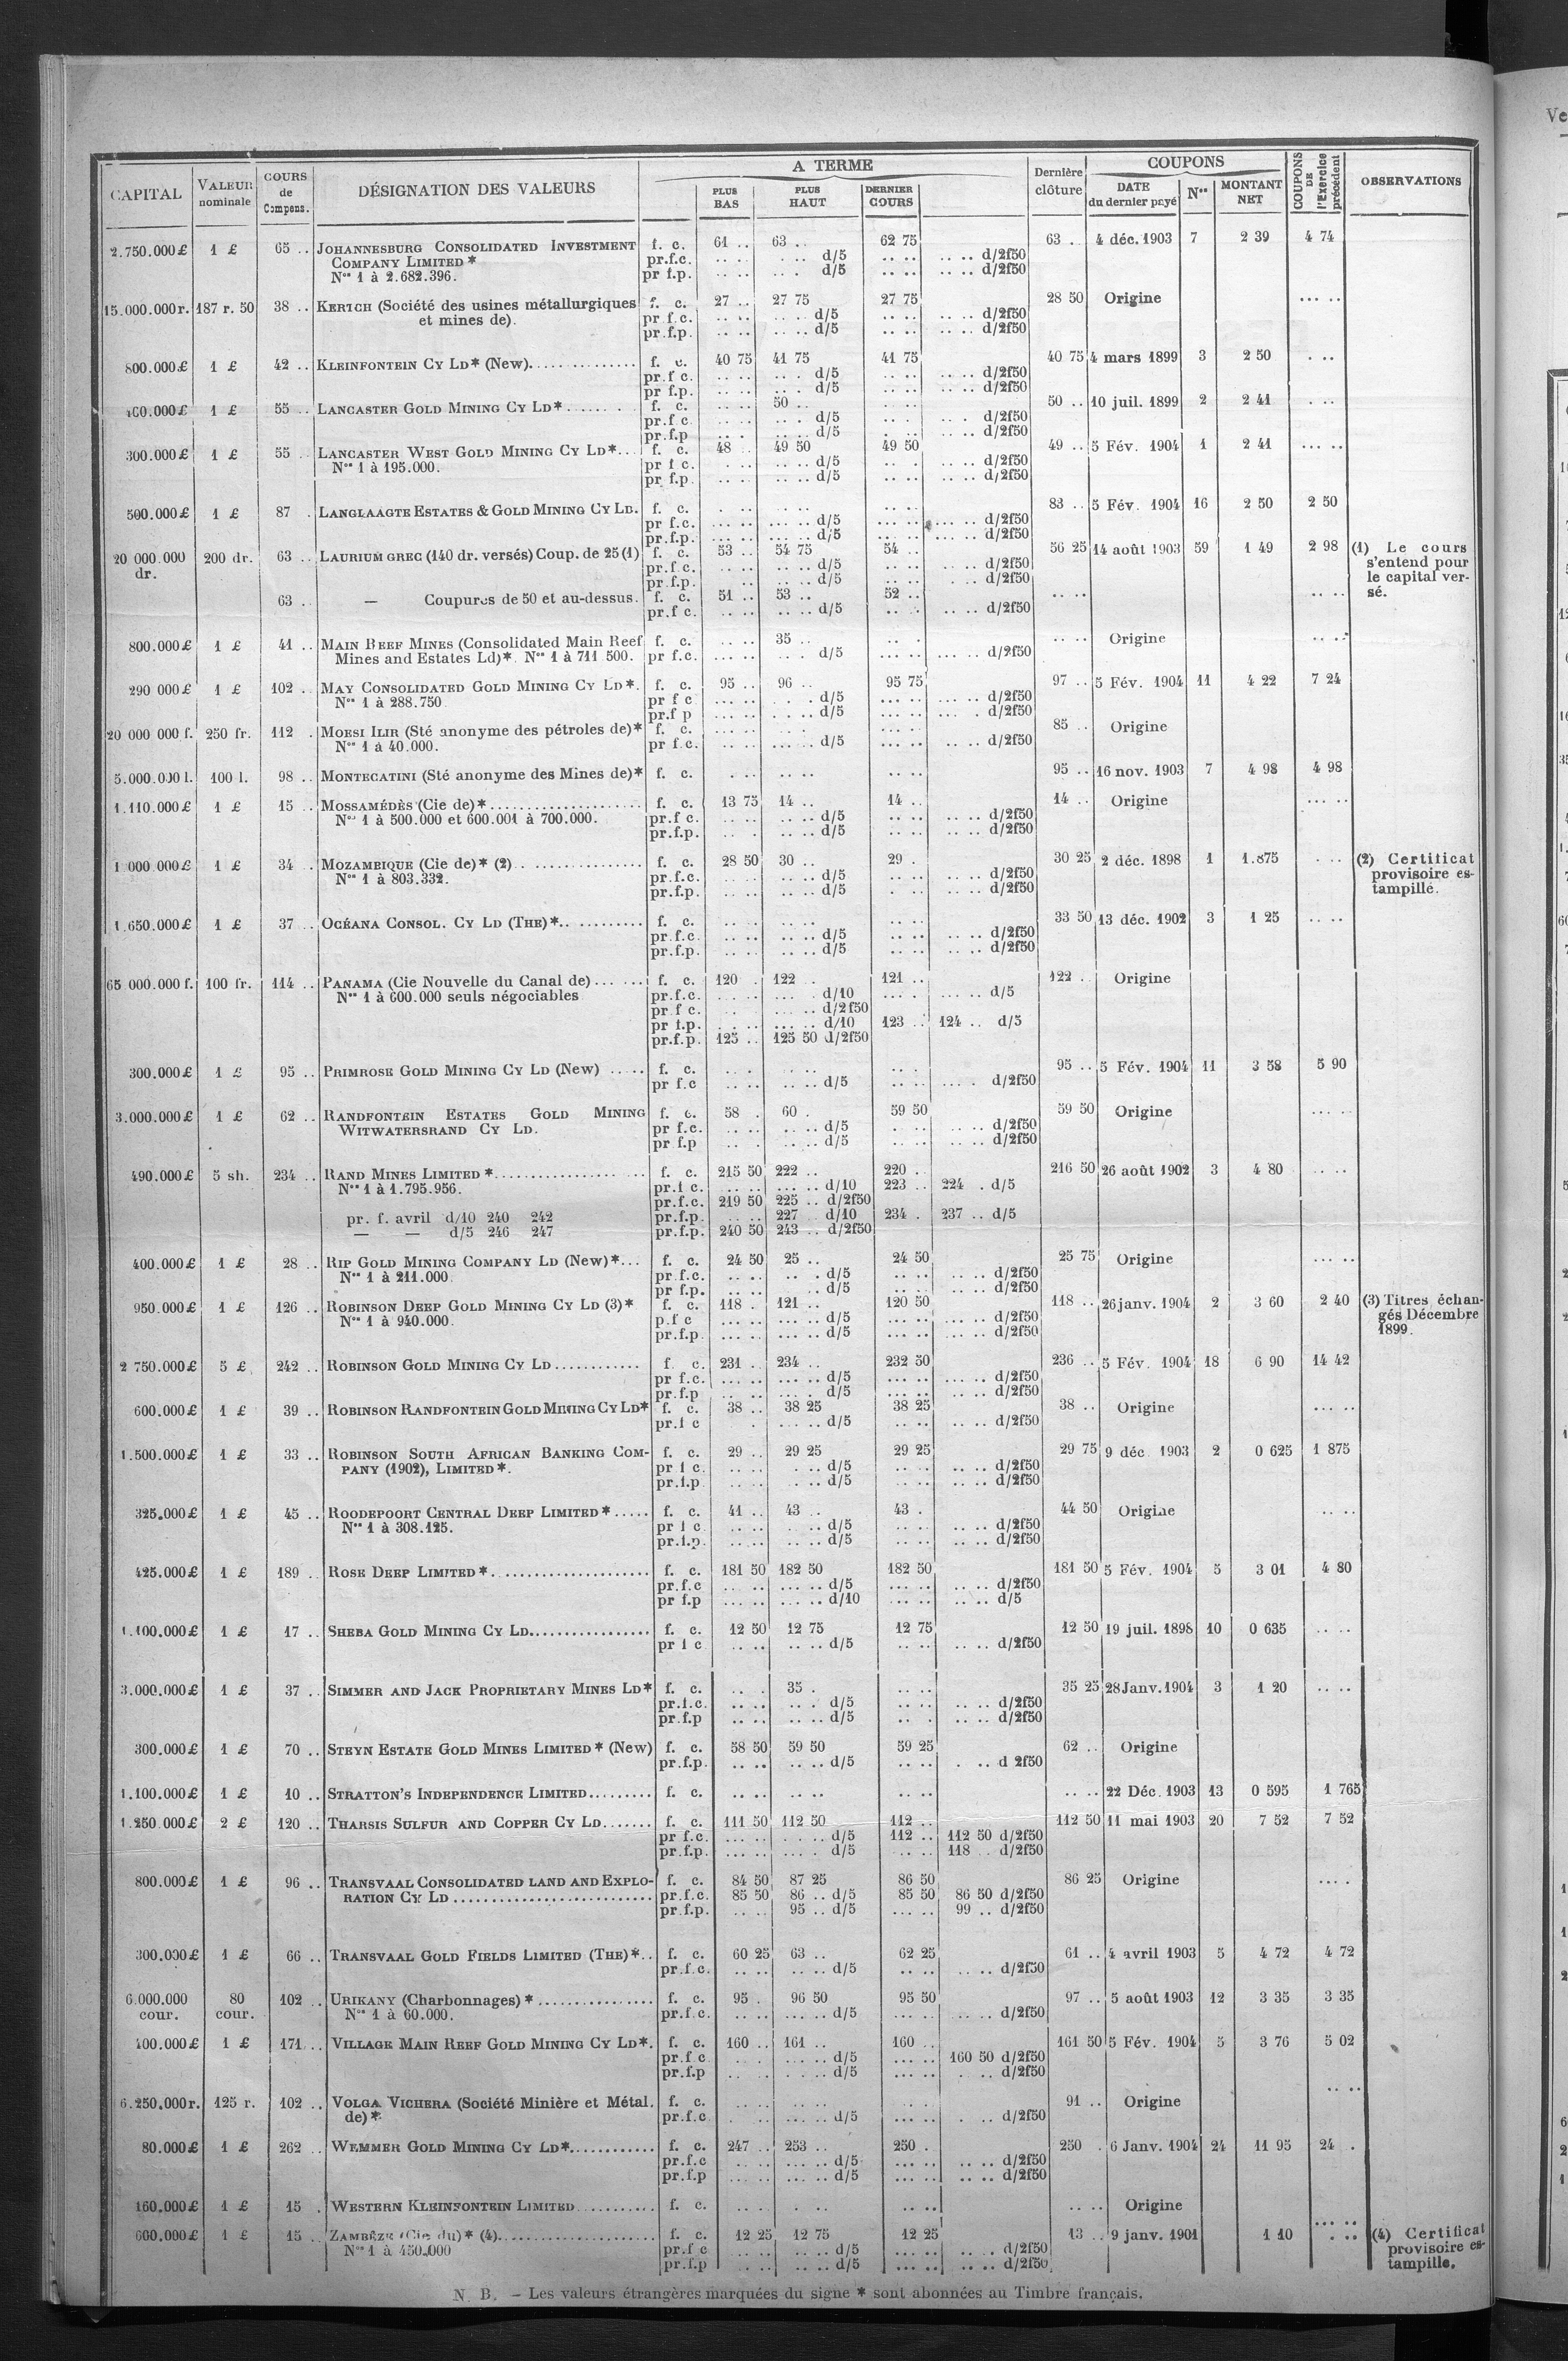 A TERME
COUPONS
CAPITAL | VALEUR nominale | COURS de Compens. | DÉSIGNATION DES VALEURS | PLUS BAS | PLUS HAUT | DERNIER COURS | Dernière clôture | DATE du dernier payé | Nos | MONTANT NET | COUPONS DE l'Exercice précédent | OBSERVATIONS
2.750.000£ 1 £ 65 .. JOHANNESBURG CONSOLIDATED INVESTMENT f. c. 61 .. 63 .. 62 75 63 .. 4 déc. 1903 7 2 39 4 74
COMPANY LIMITED * pr.f.c. d/5 d/2f50
Nos 1 à 2.682.396. pr f.p. d/5 d/2f50
15.000.000r. 187 r. 50 38 .. KERTCH (Société des usines métallurgiques f. c. 27 .. 27 75 27 75 28 50 Origine
et mines de). pr f.c. d/5 d/2f50
pr.f.p. d/5 d/2f50
800.000£ 1 £ 42 .. KLEINFONTEIN CY LD* (New) f. c. 40 75 41 75 41 75 40 75 4 mars 1899 3 2 50
pr.f c. d/5 d/2f50
pr f.p. d/5 d/2f50
1 £ 55 .. LANCASTER GOLD MINING CY LD* f. c. 50 .. 50 .. 10 juil. 1899 2 2 41
pr.f c. d/5 d/2f50
pr.f.p d/5 d/2f50
300.000£ 1 £ 55 LANCASTER WEST GOLD MINING CY LD* f. c. 48 49 50 49 50 49 .. 5 Fév. 1904 1 2 41
Nos 1 à 195.000. pr f c. d/5 d/2f50
pr f.p. d/5 d/2f50
500.000£ 1 £ 87 LANGLAAGTE ESTATES & GOLD MINING CY LD. f. c. 83 .. 5 Fév. 1904 16 2 50 2 50
pr f.c. d/5 d/2f50
pr.f.p. d/5 d/2f50
20 000.000 200 dr. 63 .. LAURIUM GREC (140 dr. versés) Coup. de 25 (1) f. c. 53 .. 54 75 54 .. 56 25 14 août 1903 59 1 49 2 98 (1) Le cours
dr. pr.f c. d/5 d/2f50 s'entend pour
pr.f.p. d/5 d/2f50 le capital ver-
63 .. — Coupures de 50 et au-dessus. f. c. 51 .. 53 .. 52 .. sé.
pr.f c. d/5 d/2f50
800.000£ 1 £ 41 .. MAIN REEF MINES (Consolidated Main Reef f. c. 35 .. Origine
Mines and Estates Ld)*. Nos 1 à 711 500. pr f.c. d/5 d/2f50
290 000£ 1 £ 102 .. MAY CONSOLIDATED GOLD MINING CY LD*. f. c. 95 .. 96 .. 95 75 97 .. 5 Fév. 1904 11 4 22 7 24
Nos 1 à 288.750. pr f c d/5 d/2f50
pr.f p d/5 d/2f50
20 000 000 f. 250 fr. 112 MORSI ILIR (Sté anonyme des pétroles de)* f. c. 85 .. Origine
Nos 1 à 40.000. pr f.c. d/5 d/2f50
5.000.000 l. 100 l. 98 .. MONTECATINI (Sté anonyme des Mines de)* f. c. 95 .. 16 nov. 1903 7 4 98 4 98
1.110.000£ 1 £ 15 .. MOSSAMÉDÈS (Cie de)* f. c. 13 75 14 .. 14 .. 14 .. Origine
Nos 1 à 500.000 et 600.001 à 700.000. pr.f c. d/5 d/2f50
pr.f.p. d/5 d/2f50
1 000 000£ 1 £ 34 .. MOZAMBIQUE (Cie de)* (2) f. c. 28 50 30 .. 29 . 30 25 2 déc. 1898 1 1.875 (2) Certificat
Nos 1 à 803.332. pr.f.c. d/5 d/2f50 provisoire es-
pr.f.p. d/5 d/2f50 tampillé.
1.650.000£ 1 £ 37 .. OCÉANA CONSOL. CY LD (THE)* f. c. 33 50 13 déc. 1902 3 1 25
pr.f.c. d/5 d/2f50
pr.f.p. d/5 d/2f50
65 000.000 f. 100 fr. 114 .. PANAMA (Cie Nouvelle du Canal de) f. c. 120 . 122 . 121 .. 122 .. Origine
Nos 1 à 600.000 seuls négociables pr.f.c. d/10 d/5
pr f c. d/2f50
pr f.p. d/10 123 .. 124 .. d/5
pr.f.p. 125 .. 125 50 d/2f50
300.000£ 1 £ 95 .. PRIMROSE GOLD MINING CY LD (New) f. c. 95 .. 5 Fév. 1904 11 3 58 5 90
pr f.c d/5 d/2f50
3.000.000£ 1 £ 62 .. RANDFONTEIN ESTATES GOLD MINING f. c. 58 . 60 . 59 50 59 50 Origine
WITWATERSRAND CY LD. pr f.c. d/5 d/2f50
pr f.p d/5 d/2f50
490.000£ 5 sh. 234 .. RAND MINES LIMITED * f. c. 215 50 222 .. 220 .. 216 50 26 août 1902 3 4 80
Nos 1 à 1.795.956. pr.f c. d/10 223 .. 224 . d/5
pr.f.c. 219 50 225 .. d/2f50
pr. f. avril d/10 240 242 pr.f.p. 227 .. d/10 234 . 237 .. d/5
— — d/5 246 247 pr.f.p. 240 50 243 .. d/2f50
400.000£ 1 £ 28 .. RIP GOLD MINING COMPANY LD (New)* f. c. 24 50 25 .. 24 50 25 75 Origine
Nos 1 à 211.000. pr f.c. d/5 d/2f50
pr f.p. d/5 d/2f50
950.000£ 1 £ 126 .. ROBINSON DEEP GOLD MINING CY LD (3)* f. c. 118 . 121 .. 120 50 118 .. 26 janv. 1904 2 3 60 2 40 (3) Titres échan-
Nos 1 à 940.000. p.f c d/5 d/2f50 gés Décembre
pr.f.p. d/5 d/2f50 1899.
2 750.000£ 5 £ 242 .. ROBINSON GOLD MINING CY LD f. c. 231 .. 234 .. 232 50 236 .. 5 Fév. 1904 18 6 90 14 42
pr f.c. d/5 d/2f50
pr.f.p d/5 d/2f50
600.000£ 1 £ 39 .. ROBINSON RANDFONTEIN GOLD MINING CY LD* f. c. 38 .. 38 25 38 25 38 .. Origine
pr.f c d/5 d/2f50
1.500.000£ 1 £ 33 .. ROBINSON SOUTH AFRICAN BANKING COM- f. c. 29 .. 29 25 29 25 29 75 9 déc. 1903 2 0 625 1 875
PANY (1902), LIMITED *. pr f c. d/5 d/2f50
pr.f.p. d/5 d/2f50
325.000£ 1 £ 45 .. ROODEPOORT CENTRAL DEEP LIMITED * f. c. 41 .. 43 .. 43 . 44 50 Origine
Nos 1 à 308.125. pr f c d/5 d/2f50
pr.f.p. d/5 d/2f50
425.000£ 1 £ 189 .. ROSE DEEP LIMITED * f. c. 181 50 182 50 182 50 181 50 5 Fév. 1904 5 3 01 4 80
pr.f.c d/5 d/2f50
pr f.p d/10 d/5
1.100.000£ 1 £ 17 .. SHEBA GOLD MINING CY LD f. c. 12 50 12 75 12 75 12 50 19 juil. 1898 10 0 635
pr f c d/5 d/2f50
3.000.000£ 1 £ 37 .. SIMMER AND JACK PROPRIETARY MINES LD* f. c. 35 . 35 25 28 Janv. 1904 3 1 20
pr.f.c. d/5 d/2f50
pr.f.p d/5 d/2f50
300.000£ 1 £ 70 .. STEYN ESTATE GOLD MINES LIMITED * (New) f. c. 58 50 59 50 59 25 62 .. Origine
pr.f.p. d/5 d 2f50
1.100.000£ 1 £ 10 .. STRATTON'S INDEPENDENCE LIMITED f. c. 22 Déc. 1903 13 0 595 1 765
1.250 000£ 2 £ 120 .. THARSIS SULFUR AND COPPER CY LD f. c. 111 50 112 50 112 .. 112 50 11 mai 1903 20 7 52 7 52
pr f.c. d/5 112 .. 112 50 d/2f50
pr.f.p. d/5 118 .. d/2f50
800.000£ 1 £ 96 .. TRANSVAAL CONSOLIDATED LAND AND EXPLO- f. c. 84 50 87 25 86 50 86 25 Origine
RATION CY LD pr.f.c. 85 50 86 .. d/5 85 50 86 50 d/2f50
pr.f.p. 95 .. d/5 99 .. d/2f50
300.000£ 1 £ 66 .. TRANSVAAL GOLD FIELDS LIMITED (THE)* f. c. 60 25 63 .. 62 25 61 .. 4 avril 1903 5 4 72 4 72
pr.f.c. d/5 d/2f50
6.000.000 80 102 .. URIKANY (Charbonnages) * f. c. 95 . 96 50 95 50 97 .. 5 août 1903 12 3 35 3 35
cour. cour. Nos 1 à 60.000. pr.f.c. d/5 d/2f50
400.000£ 1 £ 171 .. VILLAGE MAIN REEF GOLD MINING CY LD*. f. c. 160 .. 161 .. 160 .. 161 50 5 Fév. 1904 5 3 76 5 02
pr.f c d/5 160 50 d/2f50
pr.f.p d/5 d/2f50
6.250.000r. 125 r. 102 .. VOLGA VICHERA (Société Minière et Métal. f. c. 91 .. Origine
de)* pr.f.c. d/5 d/2f50
80.000£ 1 £ 262 .. WEMMER GOLD MINING CY LD* f. c. 247 .. 253 .. 250 . 250 . 6 Janv. 1904 24 11 95 24 .
pr.f.c d/5 d/2f50
pr.f.p d/5 d/2f50
160.000£ 1 £ 15 . WESTERN KLEINFONTEIN LIMITED f. c. Origine
600.000£ 1 £ 15 .. ZAMBÈZE (Cie du)* (4) f. c. 12 25 12 75 12 25 13 .. 9 janv. 1901 1 10 (4) Certificat
Nos 1 à 450.000 pr.f c d/5 d/2f50 provisoire es-
pr.f.p d/5 d/2f50 tampillé.
N. B. — Les valeurs étrangères marquées du signe * sont abonnées au Timbre français.
Ve